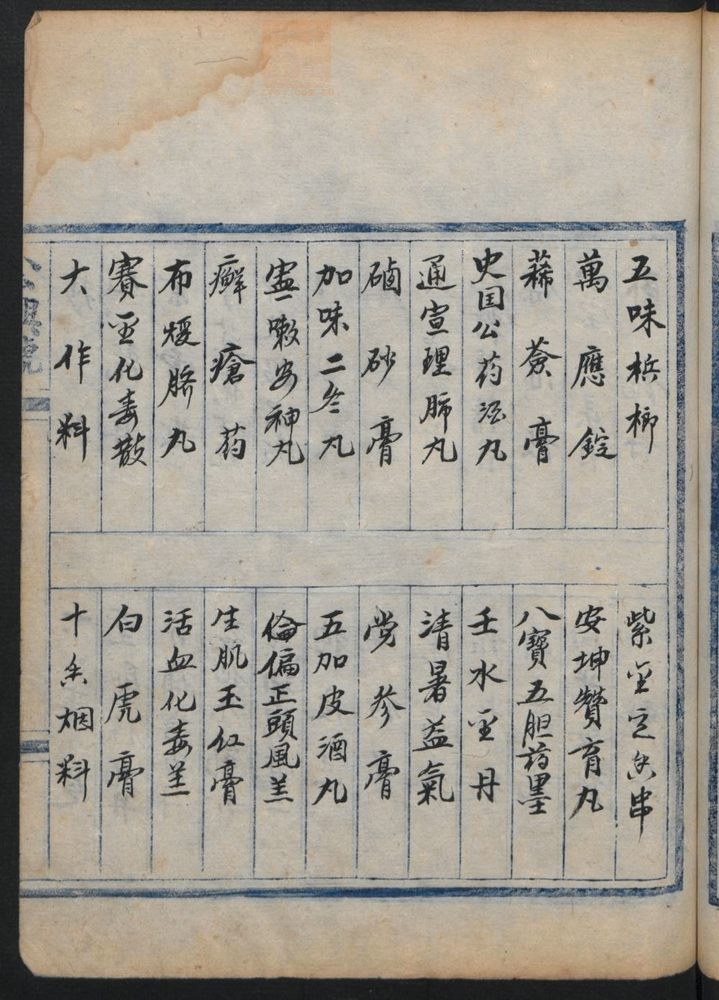 五味梹榔
萬應錠
蓀薟膏
史国公药酒丸
通宣理肺丸
硇砂膏
加味二冬丸
寍嗽安神丸
癬瘡药
布煖臍丸
賽金化毒散
大作料
紫金定香串
安坤贊育丸
八寶五胆药墨
壬水金丹
清暑益氣
党参膏
五加皮酒丸
偏正頭風羔
生肌玉红膏
活血化毒羔
白虎膏
十香烟料